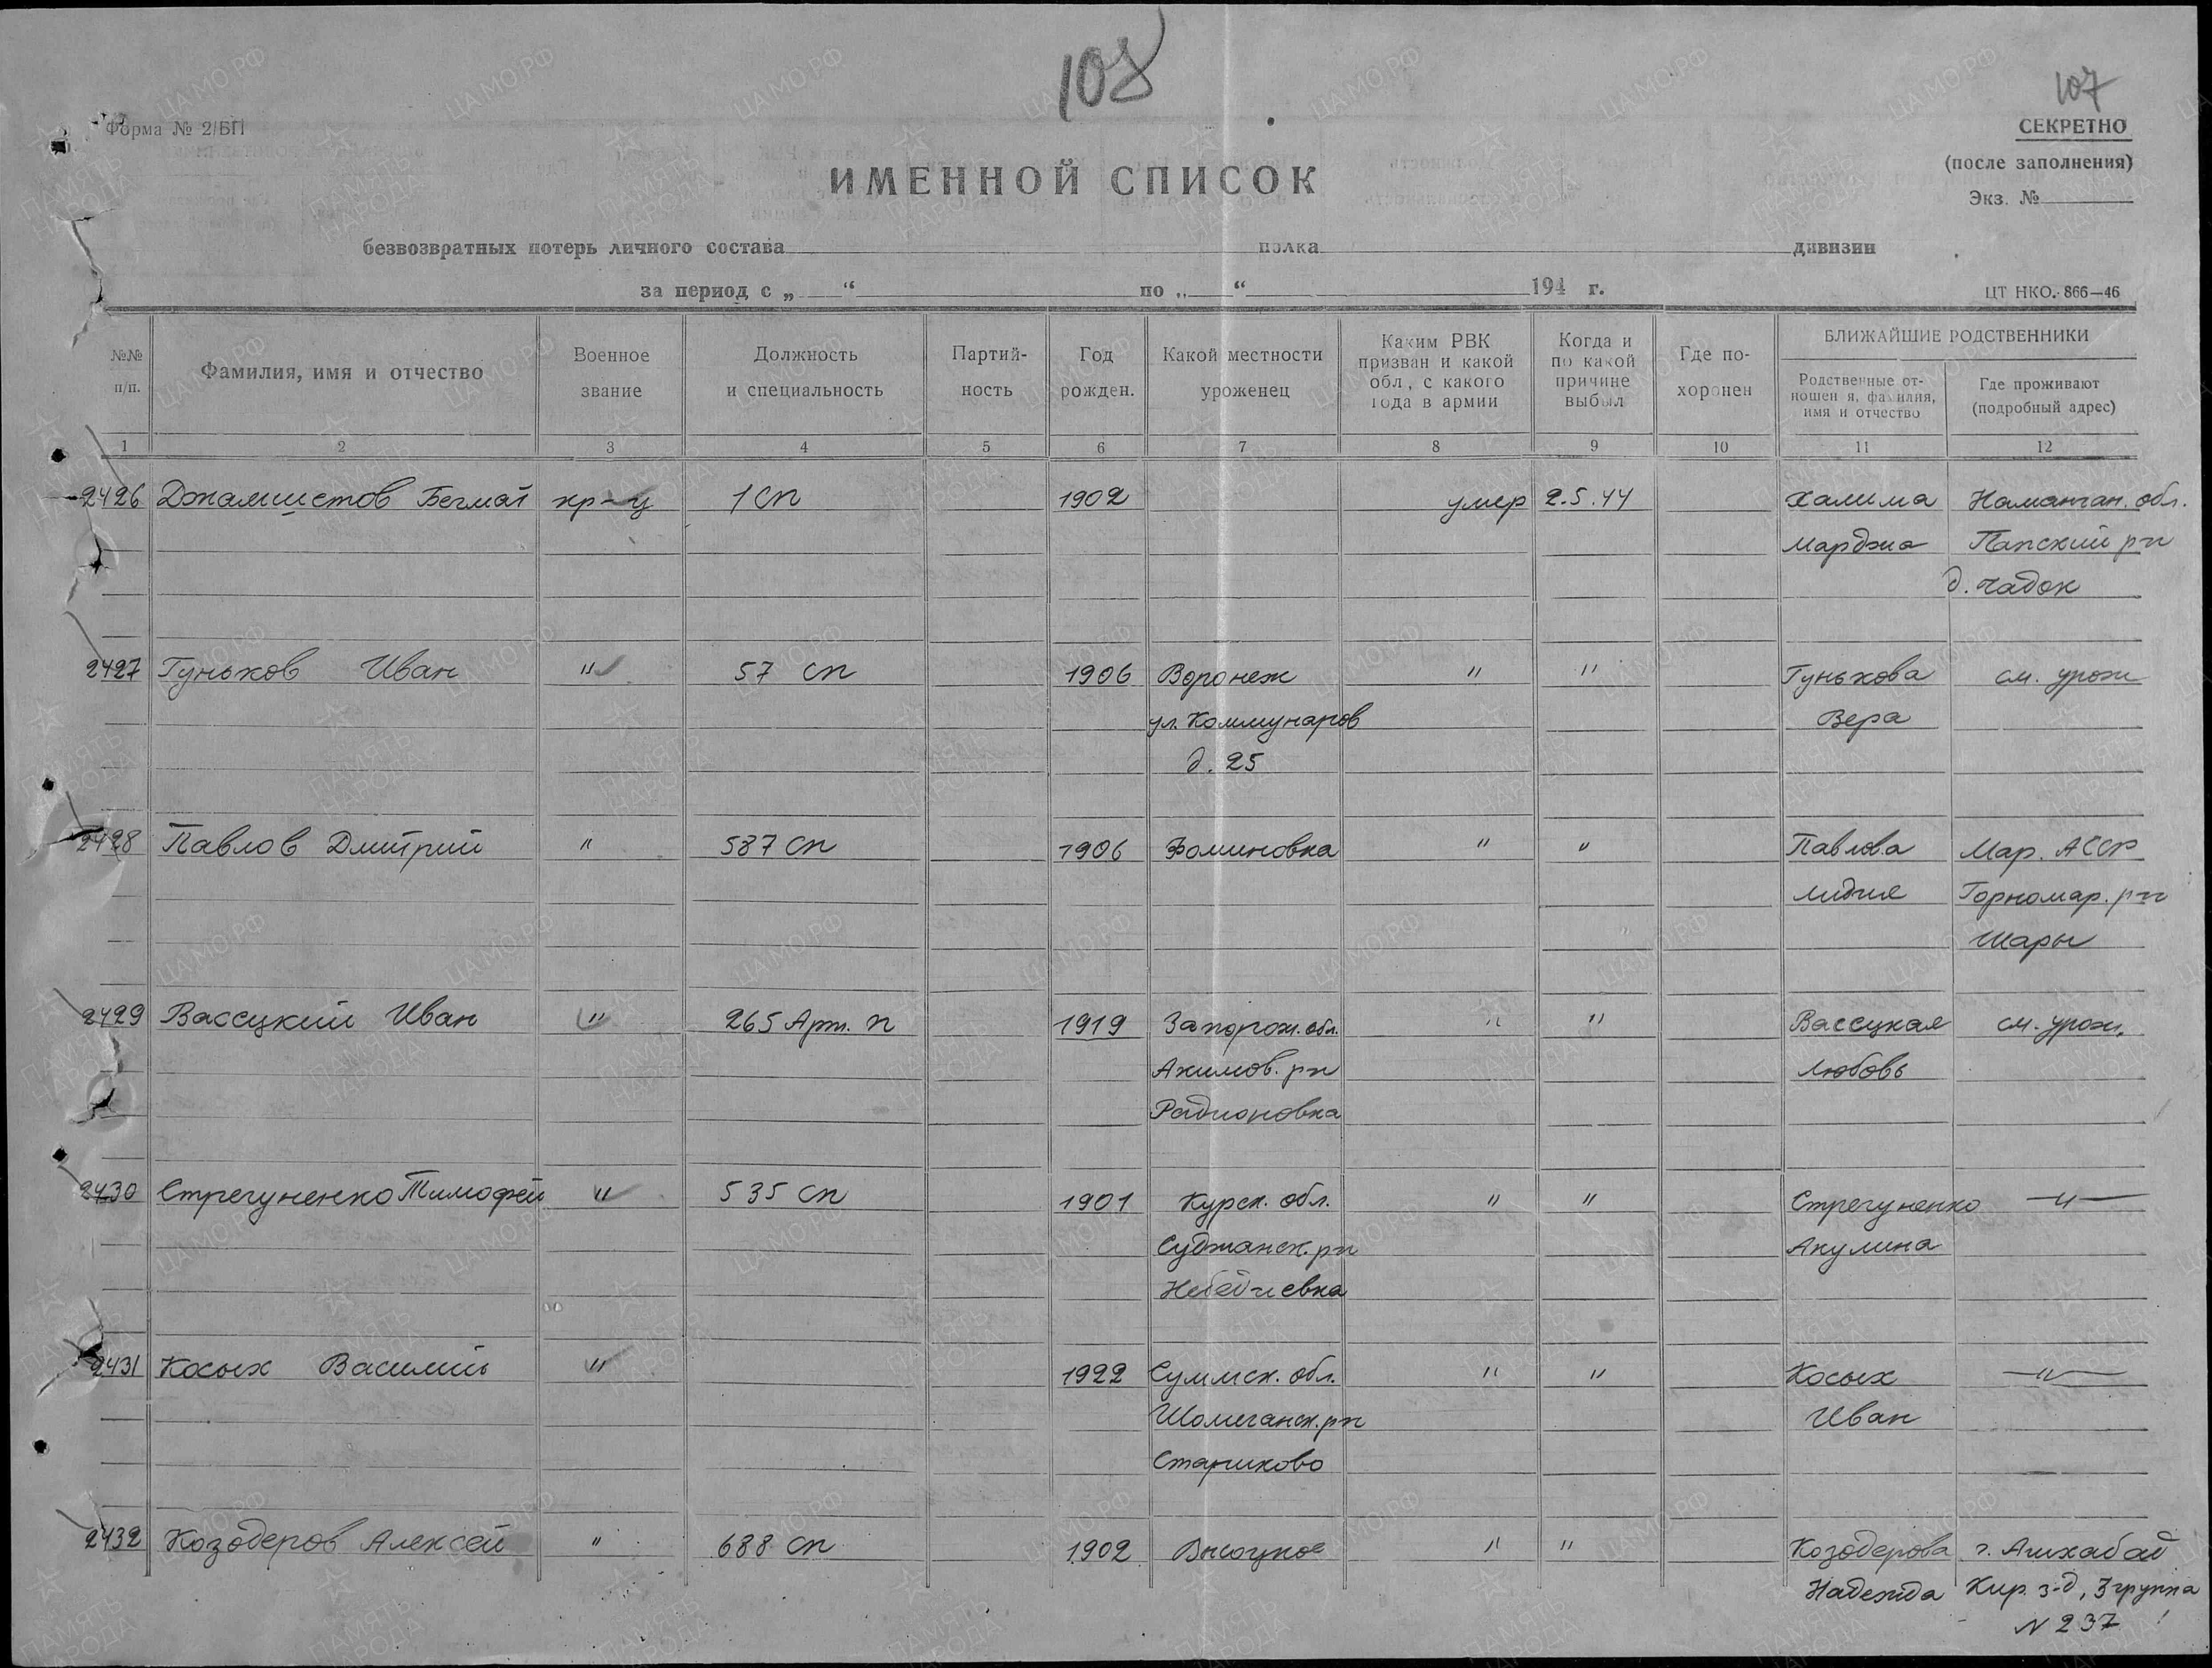 108
107
Форма № 2/БП
СЕКРЕТНО
(после заполнения)
Экз. №
ИМЕННОЙ СПИСОК
безвозвратных потерь личного состава полка дивизии
за период с „ “ по „ “ 194 г.
ЦТ НКО. 866—46
№№ п/п.
Фамилия, имя и отчество
Военное звание
Должность и специальность
Партий- ность
Год рожден.
Какой местности уроженец
Каким РВК призван и какой обл, с какого года в армии
Когда и по какой причине выбыл
Где по- хоронен
БЛИЖАЙШИЕ РОДСТВЕННИКИ
Родственные от- ношен я, фамилия, имя и отчество
Где проживают (подробный адрес)
1 2 3 4 5 6 7 8 9 10 11 12
2426 Джамшетов Бегмат кр-ц 1 сп 1902 умер 2.5.44 Халима Наманган. обл.
Марджа Папский рн
д. Чадок
2427 Гуньков Иван " 57 сп 1906 Воронеж " " Гунькова см. урож
ул. Коммунаров Вера
д. 25
2428 Павлов Дмитрий " 587 сп 1906 Фоминовка " " Павлова Мар. АССР
Лидия Горномар. рн
Шары
2429 Вассцкий Иван " 265 Арт. п 1919 Запорож. обл. " " Вассцкая см. урож.
Акимов. рн Любовь
Радионовка
2430 Стрегуненко Тимофей " 535 сп 1901 Курск. обл. " " Стрегуненко —"—
Суджанск. рн Акулина
2431 Косых Василий " 1922 Суммск. обл. " " Косых —"—
Шалиганск. рн Иван
Стариково
2432 Козодеров Алексей " 688 сп 1902 Высоцкое " " Козодерова г. Ашхабад
Надежда Кир. з-д, 3 группа
N 237